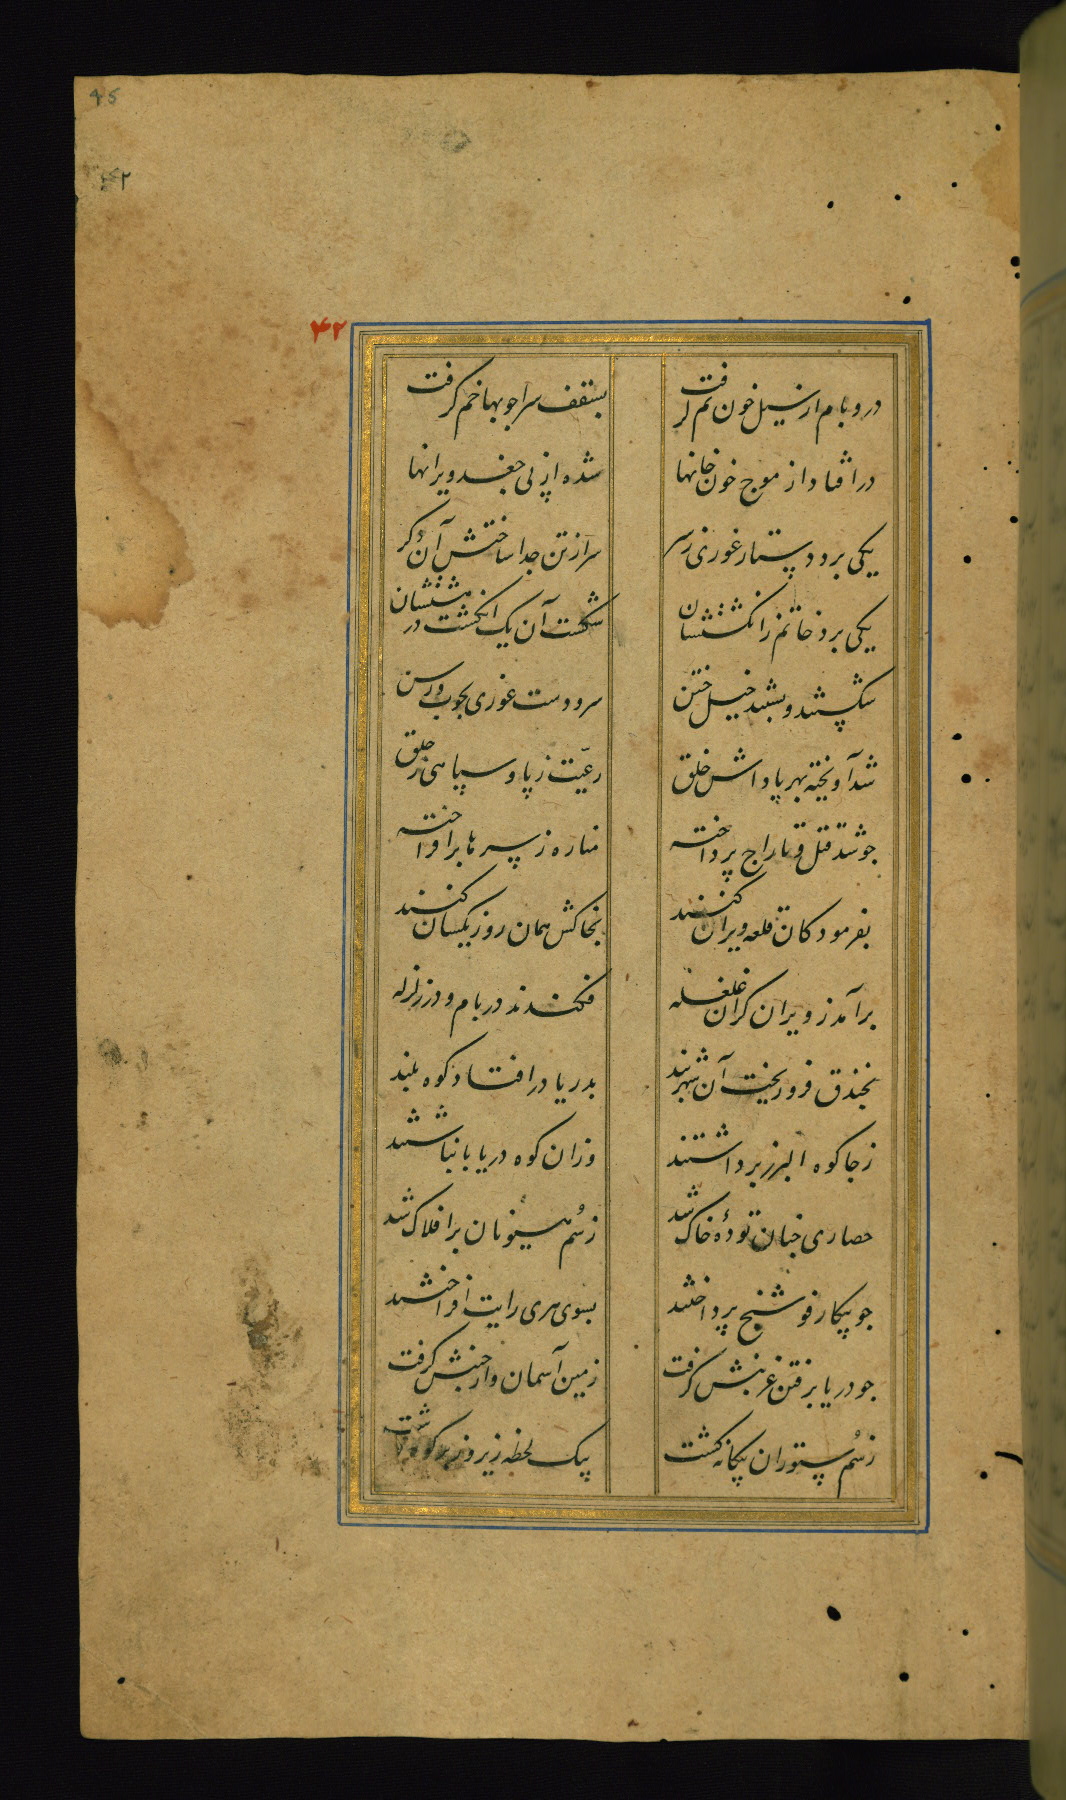 45
۴۲
۴۲
در و بام از سیل خون نم گرفت بسقف سرا جوبها خم گرفت
در افتاد از موج خون خانها شده از پی جغد ویرانها
یکی برد دستار غوری ز سر سر از تن جدا ساختش آن دگر
یکی برد خاتم ز انگشتشان شکست آن یک انگشت در مشتشان
شکستند و بستند خیل ختن سر و دست غوری بجوب و رسن
شد آویخته بهر پاداش خلق رعیّت ز پا و سپاهی ز حلق
جو شد قتل و تاراج پرداخته مناره ز سرها برافراخته
بفرمود کان قلعه ویران کنند بخاکش همان روز یکسان کنند
برآمد ز ویران کران غلغله فکندند در بام و در زلزله
بخندق فرو ریخت آن شهربند بدریا در افتاد کوه بلند
ز جا کوه البرز برداشتند وزان کوه دریا بانباشتند
حصاری جنان تودهٔ خاک شد ز سُم هیونان بر افلاک شد
جو پیکار فوشنج پرداختند بسوی هری رایت افراختند
جو دریا برفتن غرنبش گرفت زمین آسمان وار جنبش گرفت
ز سُم ستوران بیکانه گشت بیک لحظه زیر و زبر